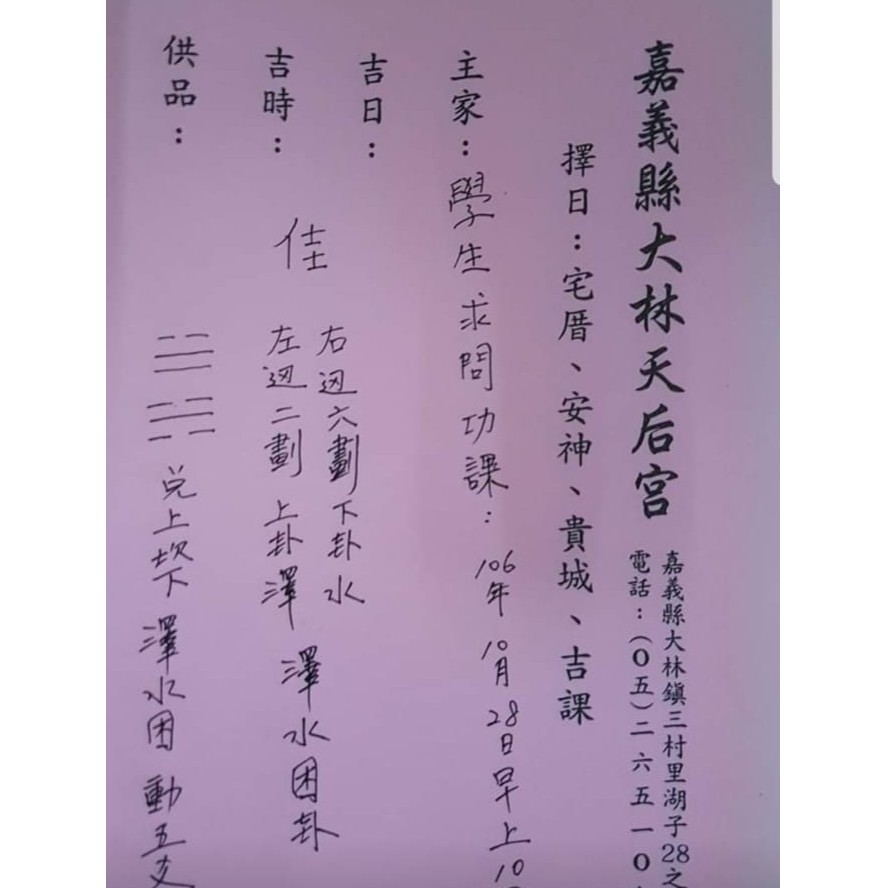 嘉義縣大林天后宮
嘉義縣大林鎮三村里湖子28之
電話：(O五)二六五一O
擇日：宅厝、安神、貴城、吉課
主家：學生求問功課：106年10月28日早上10
吉日：
右迊六劃下卦水
吉時：
佳
左迊二劃上卦澤
澤水困卦
供品：
兌上坎下 澤水困 動五爻